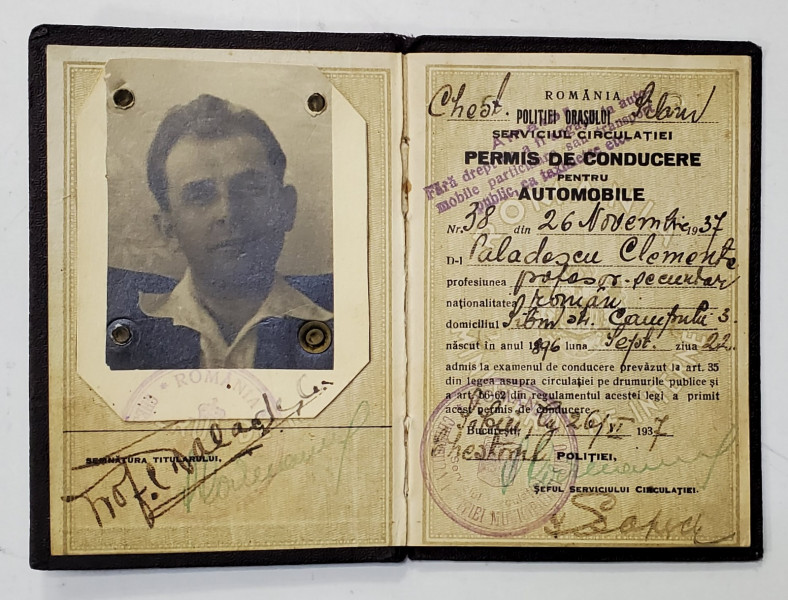 ROMÂNIA
SEMNĂTURA TITULARULUI.
Prof. C. Paladescu
ROMÂNIA
Chest. POLIȚIEI ORAȘULUI Sibiu
SERVICIUL CIRCULAȚIEI
Fără dreptul a fi angajat la auto-
mobile particulare sau transport
public, ca taximetre etc.
PERMIS DE CONDUCERE
PENTRU
AUTOMOBILE
Nr. 38 din 26 Novembrie 1937
D-l Paladescu Clemente
profesiunea profesor-secundar
naționalitatea român
domiciliul Sibiu str. Câmpului 3.
născut în anul 1896 luna Sept. ziua 22
admis la examenul de conducere prevăzut la art. 35
din legea asupra circulației pe drumurile publice și
a art. 56-62 din regulamentul acestei legi a primit
acest permis de conducere.
Sibiu,
București, 26/XI 1937
Chestorul POLIȚIEI,
ȘEFUL SERVICIULUI CIRCULAȚIEI.